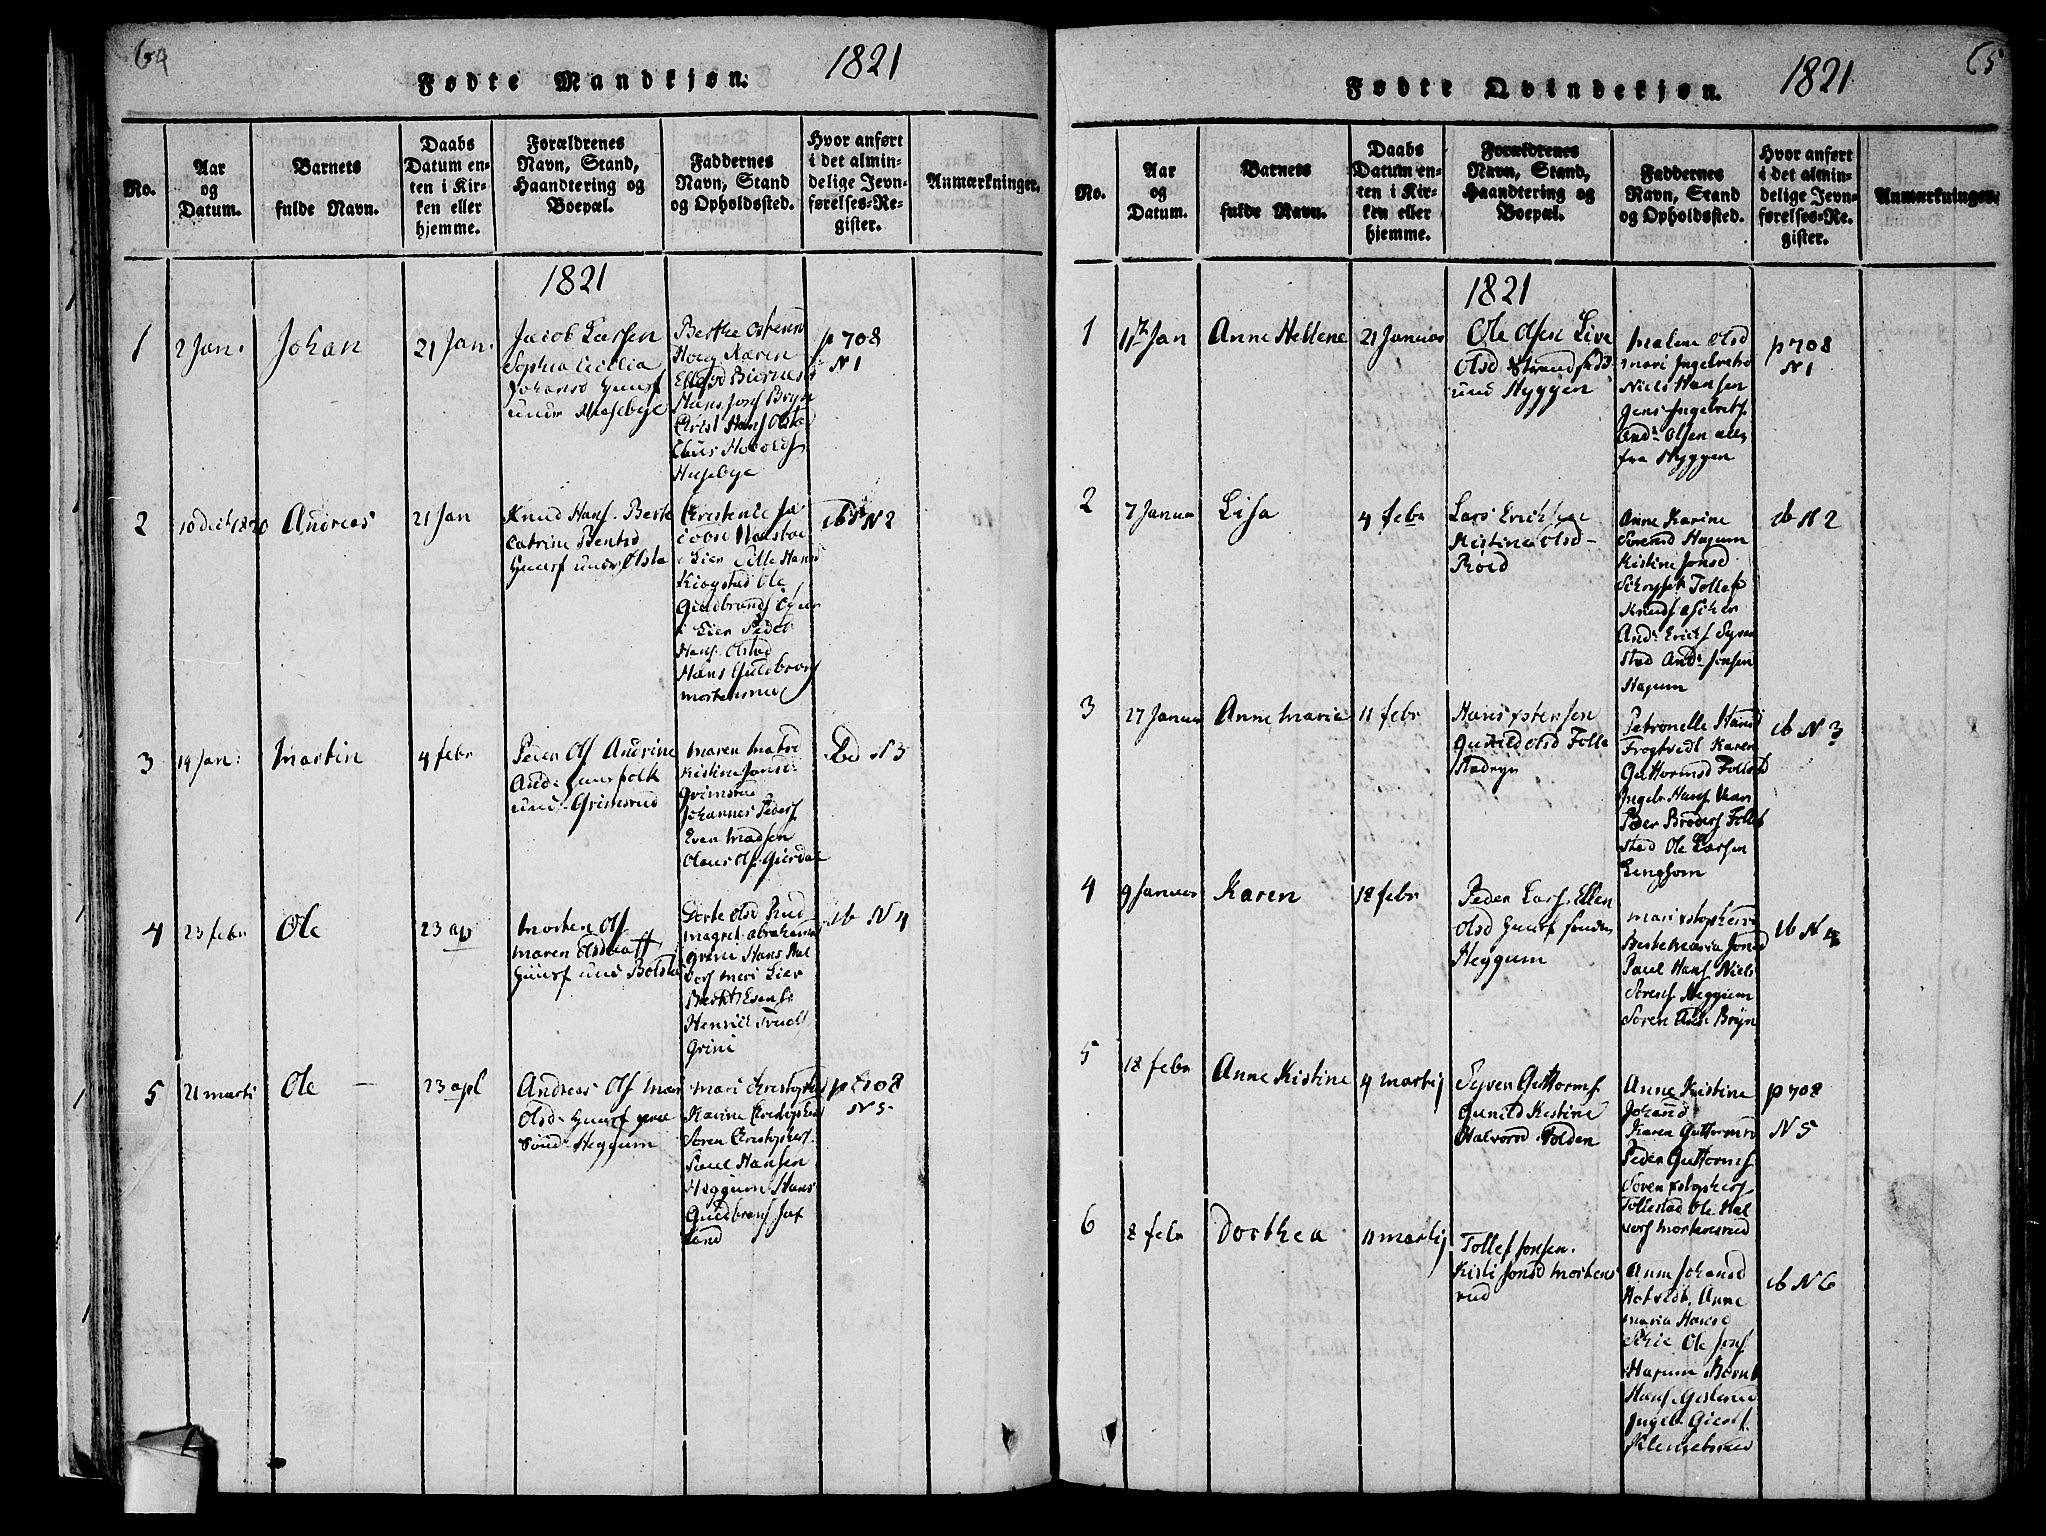 64
Fødte Mandkjøn.
1821
No.
Aar og Datum.
Barnets fulde Navn.
Daabs Datum enten i Kirken eller hjemme.
Forældrenes Navn, Stand, Haandtering og Boepæl.
Faddernes Navn, Stand og Opholdssted.
Hvor anført i det almindelige Jevnførelses-Register.
Anmærkninger.
1821
1
2 Jan.
Johan
21 Jan.
Jacob Larsen
Sophia Cicilia
Johansd
Huseby
Berthe
Hoeg Karen
Hans Jons Bryn
Christ Hans Olsta
Claus
Husebye
p 708
N 1
2
10 Dech 1820
Andreas
21 Jan
Knud Hans. Berte
Catrine Bentsd
Huusf under Olsta
Christense Ja
cobsd
i Lier Hansd
Ole
Guldbrands
i Lier Peder
Hans. Olstad
Hans Guldbrands
mortensrud
ib N 2
3
14 Jan:
Martin
4 febr
Peder Ols Andrine
And: Huusfolk
und. Grimsrud
Maren Matsd
Kistine Jonsd:
Grimsrud
Johannes Peders
Even Madsen
Olaus Ols Gierdal
N 3
4
23 febr
Ole
23 ap
Morten Ols
maren Olsdaatt
Huusf und Bolsta
Dorte Olsd Rud
magret abrahams
grini Hans Hal
vors meri Lier
Henrich
Grini
ib N 4
5
21 marti
Ole
23 apl
Andreas Ols Mari
Olsd. Huusf paa
Sønd. Heggum
mari Christophers
Karine Christophers
Soren Christophers.
Paul Hansen
Heggum Hans
Guldbrans Jaf
land
p 708
N 5
65
Fødte Qvindekjøn.
1821
No.
Aar og Datum.
Barnets fulde Navn.
Daabs Datum enten i Kirken eller hjemme.
Forældrenes Navn, Stand, Haandtering og Boepæl.
Faddernes Navn, Stand og Opholdssted.
Hvor anført i det almindelige Jevnførelses-Register.
Anmærkninger.
1821
1
Jan
Anne Hellene
21 Januar
Ole Olsen Live
Olsd Strandsid
und Hyggen
Malene Olsd
mari Ingebretsd
Niels Hansen
Jens Ingebrets
And: Olsen alle
fra Hyggen
p 708
N 1
2
7 Januar
Lisa
4 febr
Lars Erichsen
Kistine Olsd
Roed
Anne Karine
Sorensd Hagum
Kistine Jonsd
Tollef
Knuds asker
And: Erichs Syver
stad And: Jonsen
Hagum
ib N 2
3
27 Januar
Anne Marie
11 febr
Hans xstensen
Gunild Olsd Tolle
stadryn
Petronelle Hansd
Frogtvedt Karen
Guttormsd Tollestd
Ingebr Hans
Peder Broders Tolles
stad Ole Larsen
Lengsom
ib N 3
4
9 Januar
Karen
18 febr
Peder Lars. Ellen
Olsd Huusf sondre
Heggum
mari xstophers
Berte Maria Jonsd
Paul Hans Niels
Sorens Heggum
Soren And: Bryn
ib N 4
5
18 febr
Anne Kistine
4 martij
Syver Guttorms
Gunild Kistine
Halvorsd Tolden
Anne Kistine
Johansd
Karen Guttormsd
Peder Guttorms
Soren xstophers
Tollestad Ole Hal
vors Mortensrud
p 708
N 5
6
8 febr
Dorthea
11 martij
Tollef Jonsen.
Kisti Jonsd Mortens
rud
Anne Johansd
Hotvedt. Anne
Maria Hansd
Ole Jons
Hagum Bernt
Hans
Ingeb
ib N 6